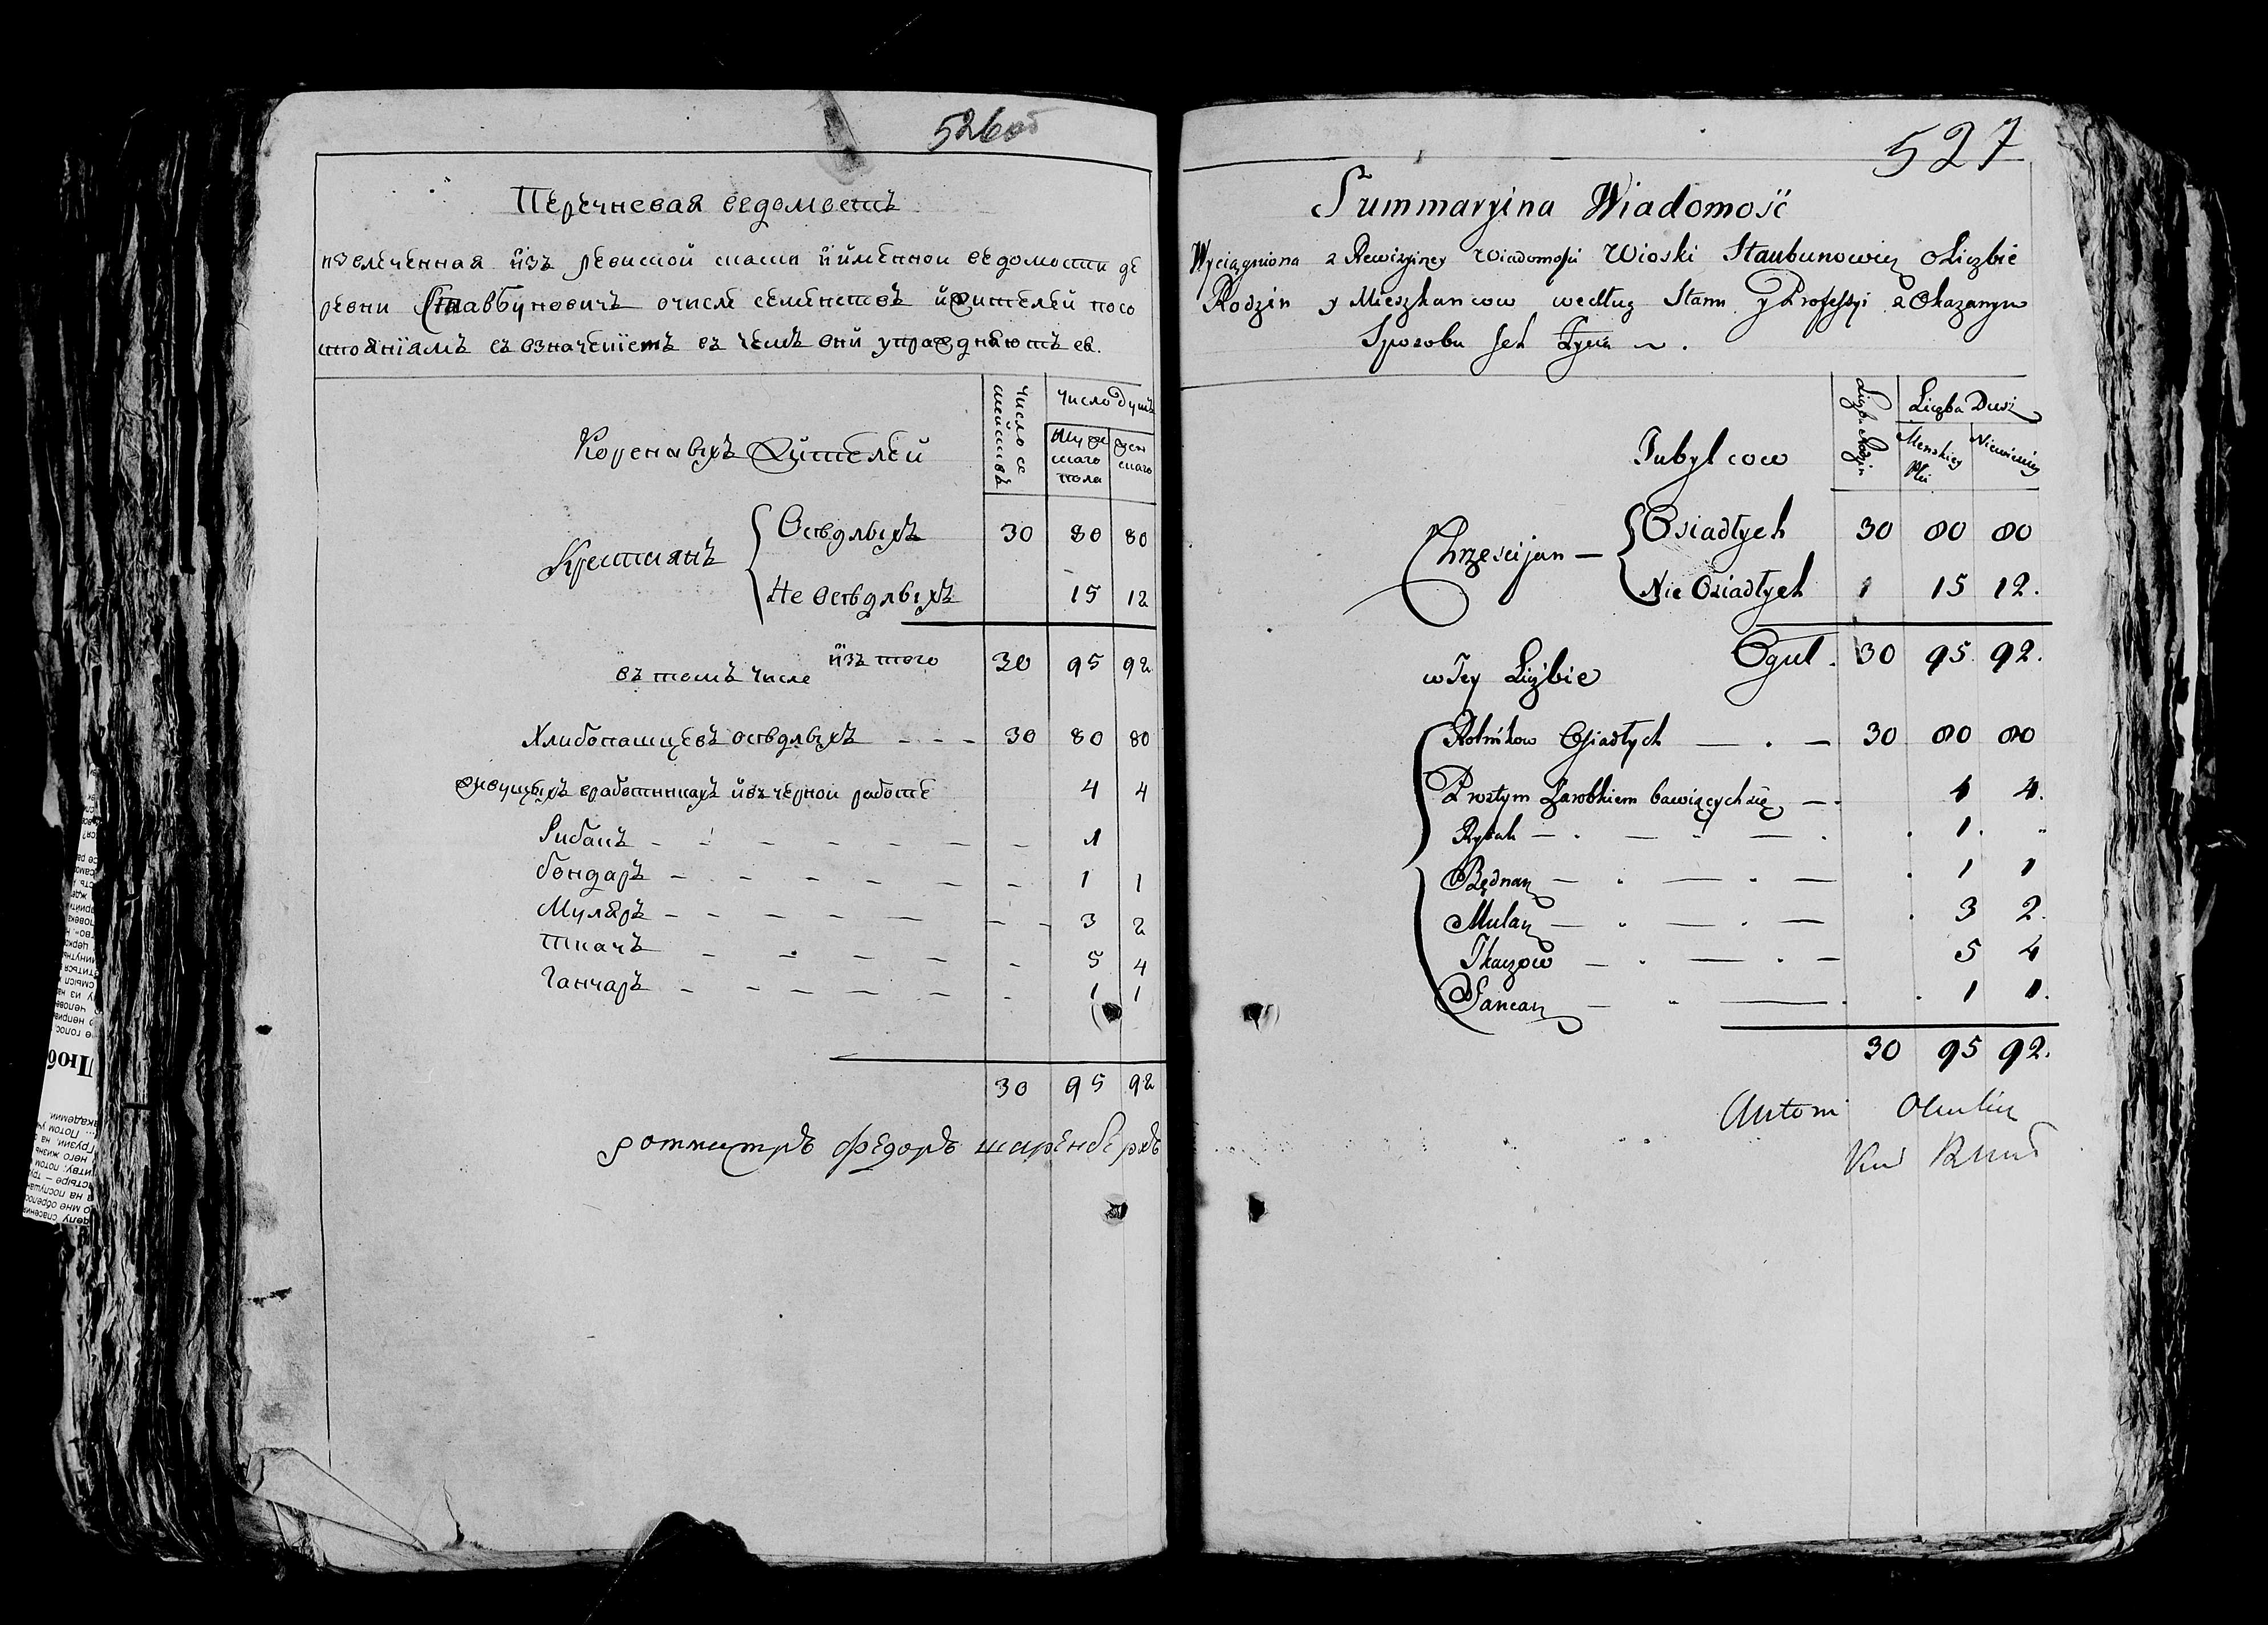 526об
Перечневая ведомость
извлеченная изъ ревиской скаски и именной ведомости де
ревни Ставбуновичъ о числе семействъ и жителей по со
стояніямъ съ означеніемъ въ чемъ они упражднаются.
Кореновыхъ Жителей
Число се
мействъ
Число Душъ
Муже
скаго
пола
жен
скаго
Крестианъ
Оседлыхъ 30 80 80
Не Оседлыхъ 15 12
изъ того 30 95 92
въ томъ числе
Хлибопашцевъ оседлыхъ - - - 30 80 80
живущихъ вработникахъ и въ черной работе 4 4
Рибакъ - - - - - - - 1
бондаръ - - - - - - 1 1
Муляръ - - - - - - - 3 2
Ткачъ - - - - - - 5 4
Ганчаръ - - - - - - 1 1
30 95 92
ротмистръ Федоръ
527
Summaryina Wiadomość
Wyciągniona z Rewizyiney Wiadomości Wioski Staubunowicz o Liczbie
Rodzin y Mieszkancow według Stanu y Professyi z Okazanym
Sposobu Ich Życia ~.
Tubylcow
Liczba Rodzin
Liczba Dusz
Menskiey
Płci
Niewieściey
Chrzescijan —
Osiadłych 30 80 80
Nie Osiadłych 1 15 12.
Ogul. 30 95 92.
w Tey Liczbie
Rolnikow Osiadłych — . — 30 80 80
Prostym Zarobkiem bawiących się — . 4 4.
Rybak — . — " — . . 1. "
Bednarz — . — . — . 1 1
Mularz — . — . — . 3 2.
Tkaczow — . — . — 5 4
Gancarz — " — . . 1 1.
30 95 92.
Antoni